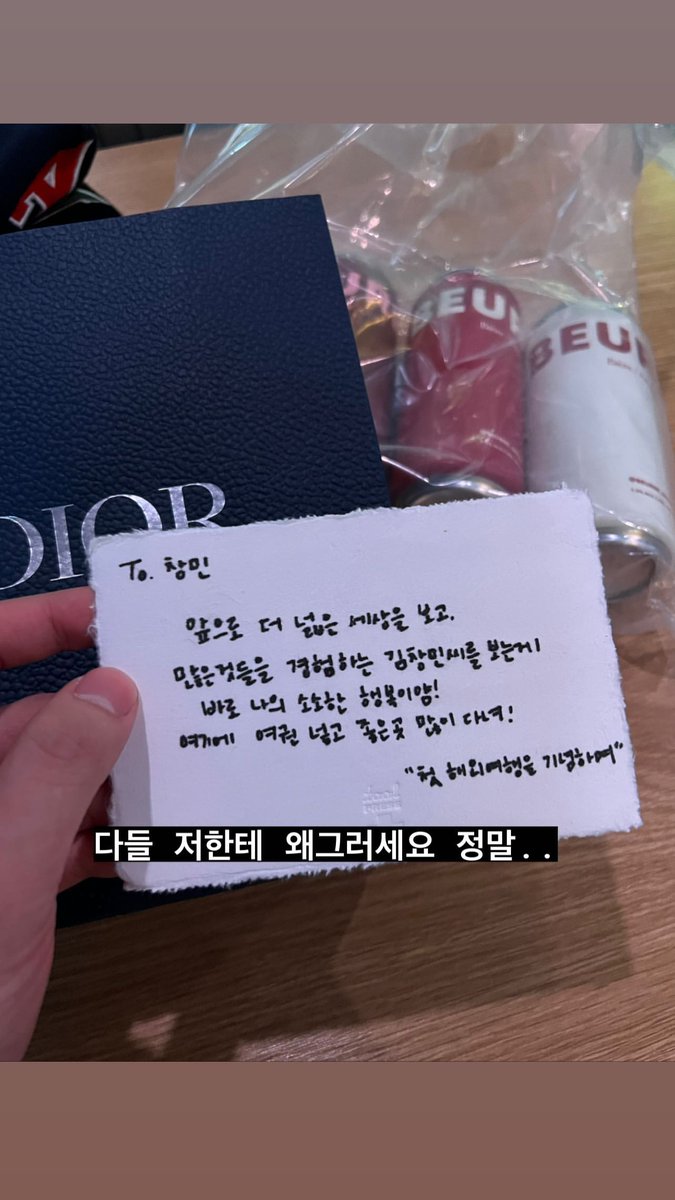 BEU
BEU
DIOR
To. 창민
앞으로 더 넓은 세상을 보고,
많은것들을 경험하는 김창민씨를 보는게
바로 나의 소소한 행복이얌!
여기에 여권 넣고 좋은곳 많이 다녀!
"첫 해외여행을 기념하며"
다들 저한테 왜그러세요 정말..